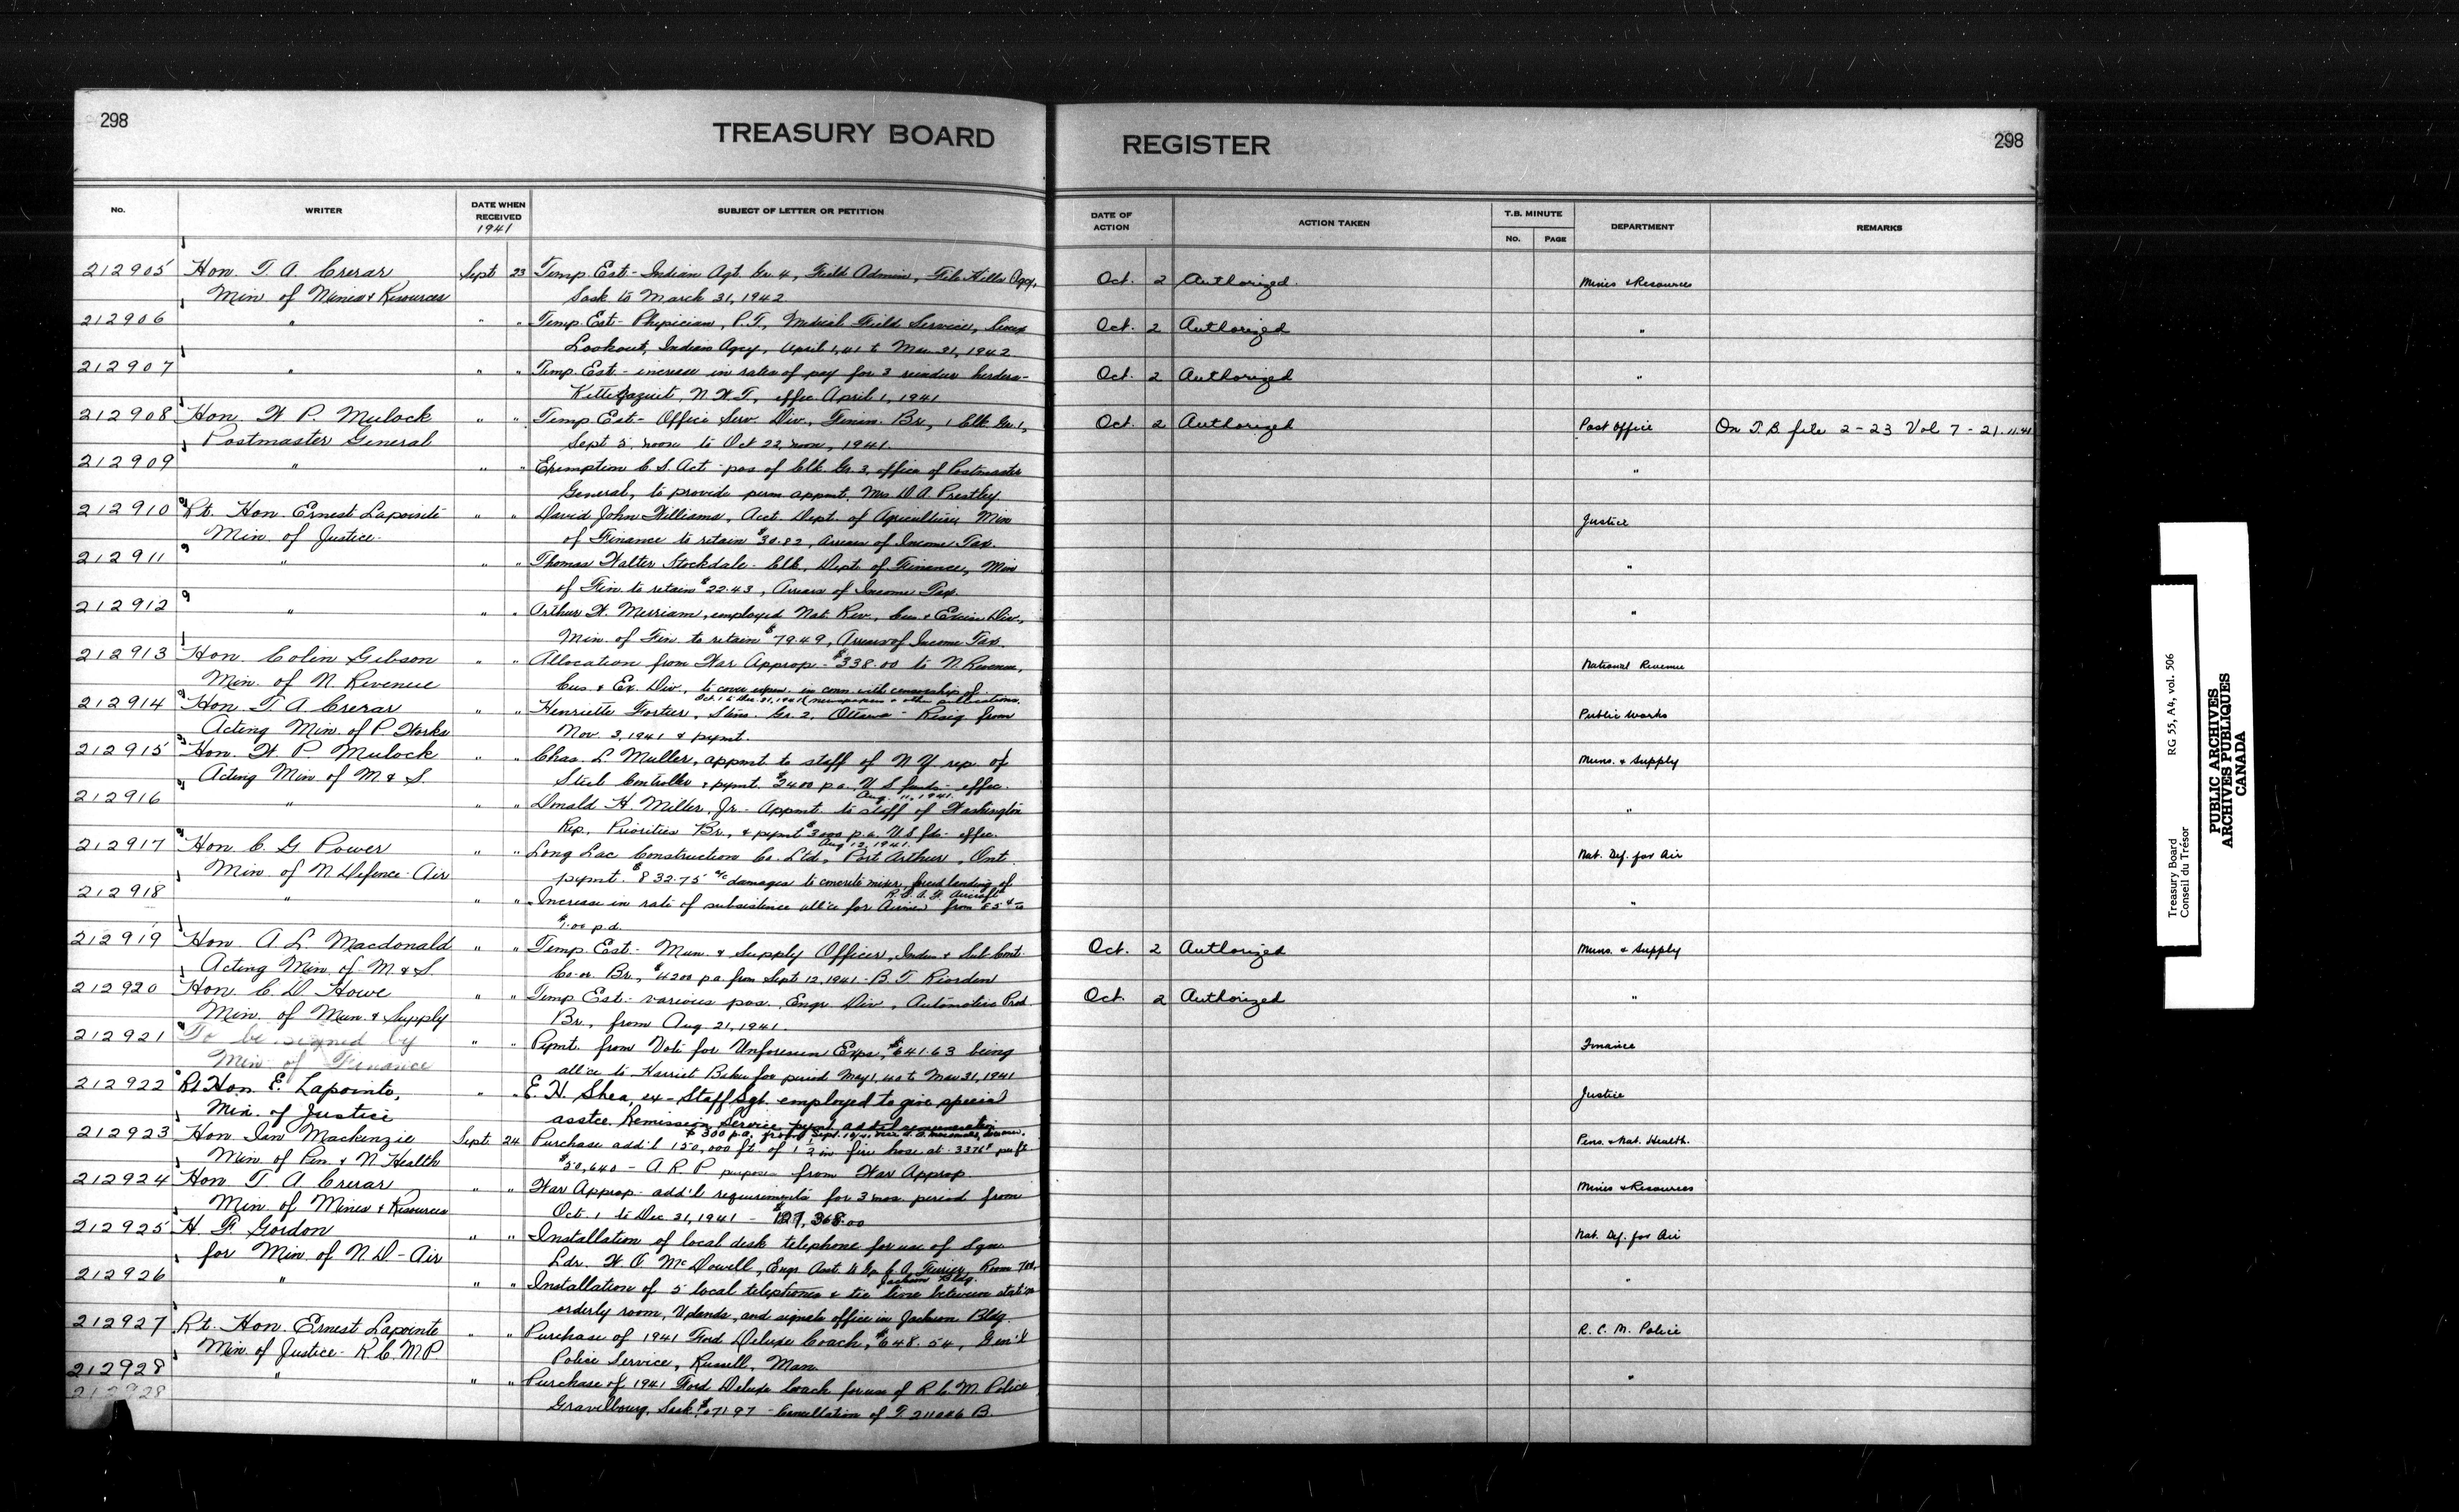 298
TREASURY BOARD
REGISTER
298
No.
WRITER
DATE WHEN RECEIVED
1941
SUBJECT OF LETTER OR PETITION
DATE OF ACTION
ACTION TAKEN
T.B. MINUTE
No.
PAGE
DEPARTMENT
REMARKS
212905 Hon. T. A. Crerar Sept 23 Temp. Est - Indian Agt. Gr. 4, Field Admin, File Hills Agcy, Oct. 2 Authorized. Mines & Resources
Min. of Mines & Resources Sask to March 31, 1942
212906 " " " Temp. Est - Physician, P.T., Medical Field Services, Sioux Oct. 2 Authorized "
Lookout, Indian Agcy, April 1, 41 to Mar 31, 1942
212907 " " " Temp. Est - increase in rates of pay for 3 reindeer herders - Oct. 2 Authorized "
Kittigazuit, N.W.T., effec. April 1, 1941
212908 Hon. W P. Mulock " " Temp Est - Office Serv. Div, Finan. Br, 1 Clk Gr. 1, Oct. 2 Authorized Post Office On T.B file 2-23 Vol 7 - 21.11.41
Postmaster General Sept 5, noon to Oct 22, noon, 1941.
212909 " " " Exemption C. S. Act - pos of Clk. Gr. 3, office of Postmaster "
General, to provide perm appmt, Mrs D. A. Prestley
212910 Rt. Hon. Ernest Lapointe " " David John Williams, Acct. Dept. of Agriculture, Min Justice
Min. of Justice. of Finance to retain $30.82, Arrears of Income Tax.
212911 " " " Thomas Walter Stockdale - Clk, Dept. of Finance, Min "
of Fin. to retain $22.43, Arrears of Income Tax
212912 " " " Arthur W. Merriam, employed Nat. Rev., Cus & Excise Div, "
Min. of Fin. to retain $79.49, Arrears of Income Tax.
212913 Hon. Colin Gibson " " Allocation from War Approp - $338.00 to N. Revenue, National Revenue
Min. of N. Revenue Cus & Ex. Div., to cover expen. in conn. with censorship of
Oct. 1 to Dec. 31, 1941 (newspapers & other publications.
212914 Hon. T. A. Crerar " " Henriette Fortier, Steno. Gr. 2, Ottawa - Resig from Public Works
Acting Min. of P. Works Nov. 3, 1941 & pymt.
212915 Hon. W. P. Mulock " " Chas. L Muller, appmt to staff of N Y. rep. of Muns. & Supply
Acting Min of M & S. Steel Controller & pymt. $2400 p.a. U S funds - effec.
Aug. 11, 1941.
212916 " " " Donald H. Miller, Jr - Appmt. to staff of Washington "
Rep, Priorities Br., & pymt $3000 p.a. U.S fds - effec.
Aug 12, 1941.
212917 Hon. C. G. Power " " Long Lac Construction Co. Ltd, Port Arthur, Ont. Nat. Def. for Air
Min. of N. Defence - Air pymt. $832.75 a/c damages to concrete mixer, forced landing of
R.C.A.F. Aircraft
212918 " " " Increase in rate of subsistence all'ce for Airmen from 85¢ to "
$1.00 p.d.
212919 Hon. A L. Macdonald " " Temp. Est. - Mun. & Supply Officer, Indus & Sub Cont. Oct. 2 Authorized Muns. & Supply
Acting Min. of M & S. Co-or. Br, $4200 p a from Sept 12, 1941 - B. T. Riordon
212920 Hon C. D Howe " " Temp Est - various pos. Engr Div, Automotive Prod Oct. 2 Authorized "
Min. of Mun. & Supply Br., from Aug 21, 1941.
212921 To be signed by " " Pymt. from Vote for Unforeseen Exps, $641.63 being Finance
Min of Finance all'ce to Harriet Baker for period May 1, 40 to Mar 31, 1941
212922 Rt Hon. E. Lapointe, " " E. H. Shea, ex-Staff Sgt. employed to give special Justice
Min. of Justice asstce. Remission Service pymt. add'al remuneration
$300 p.a. from Sept.
212923 Hon Ian Mackenzie Sept 24 Purchase add'l 150,000 ft. of 1½ in fire hose at .3376¢ per ft Pens. & Nat. Health.
Min of Pen. & N Health $50,640 - A R. P. purposes from War Approp
212924 Hon T. A Crerar " " War Approp - add'l requirements for 3 mos. period from Mines & Resources
Min of Mines & Resources Oct. 1 to Dec 31, 1941 - $127,368.00
212925 H. F. Gordon " " Installation of local desk telephone for use of Sqn. Nat. Def. for Air
for Min. of N D - Air Ldr. W. O McDowell, Engr. Asst. to Gp. C. A. Ferrier, Room 700,
Jackson Bldg.
212926 " " " Installation of 5 local telephones & tie line between station "
orderly room, Uplands, and signals office in Jackson Bldg.
212927 Rt. Hon. Ernest Lapointe " " Purchase of 1941 Ford Deluxe Coach, $648.54, Gen'l R. C. M. Police
Min. of Justice - R.C.M.P. Police Service, Russell, Man.
212928 " " " Purchase of 1941 Ford Deluxe Coach for use of R. C. M. Police "
212928 Gravelbourg, Sask. - Cancellation of T. 211006 B.
Treasury Board RG 55, A4, vol. 506
Conseil du Trésor
PUBLIC ARCHIVES
ARCHIVES PUBLIQUES
CANADA